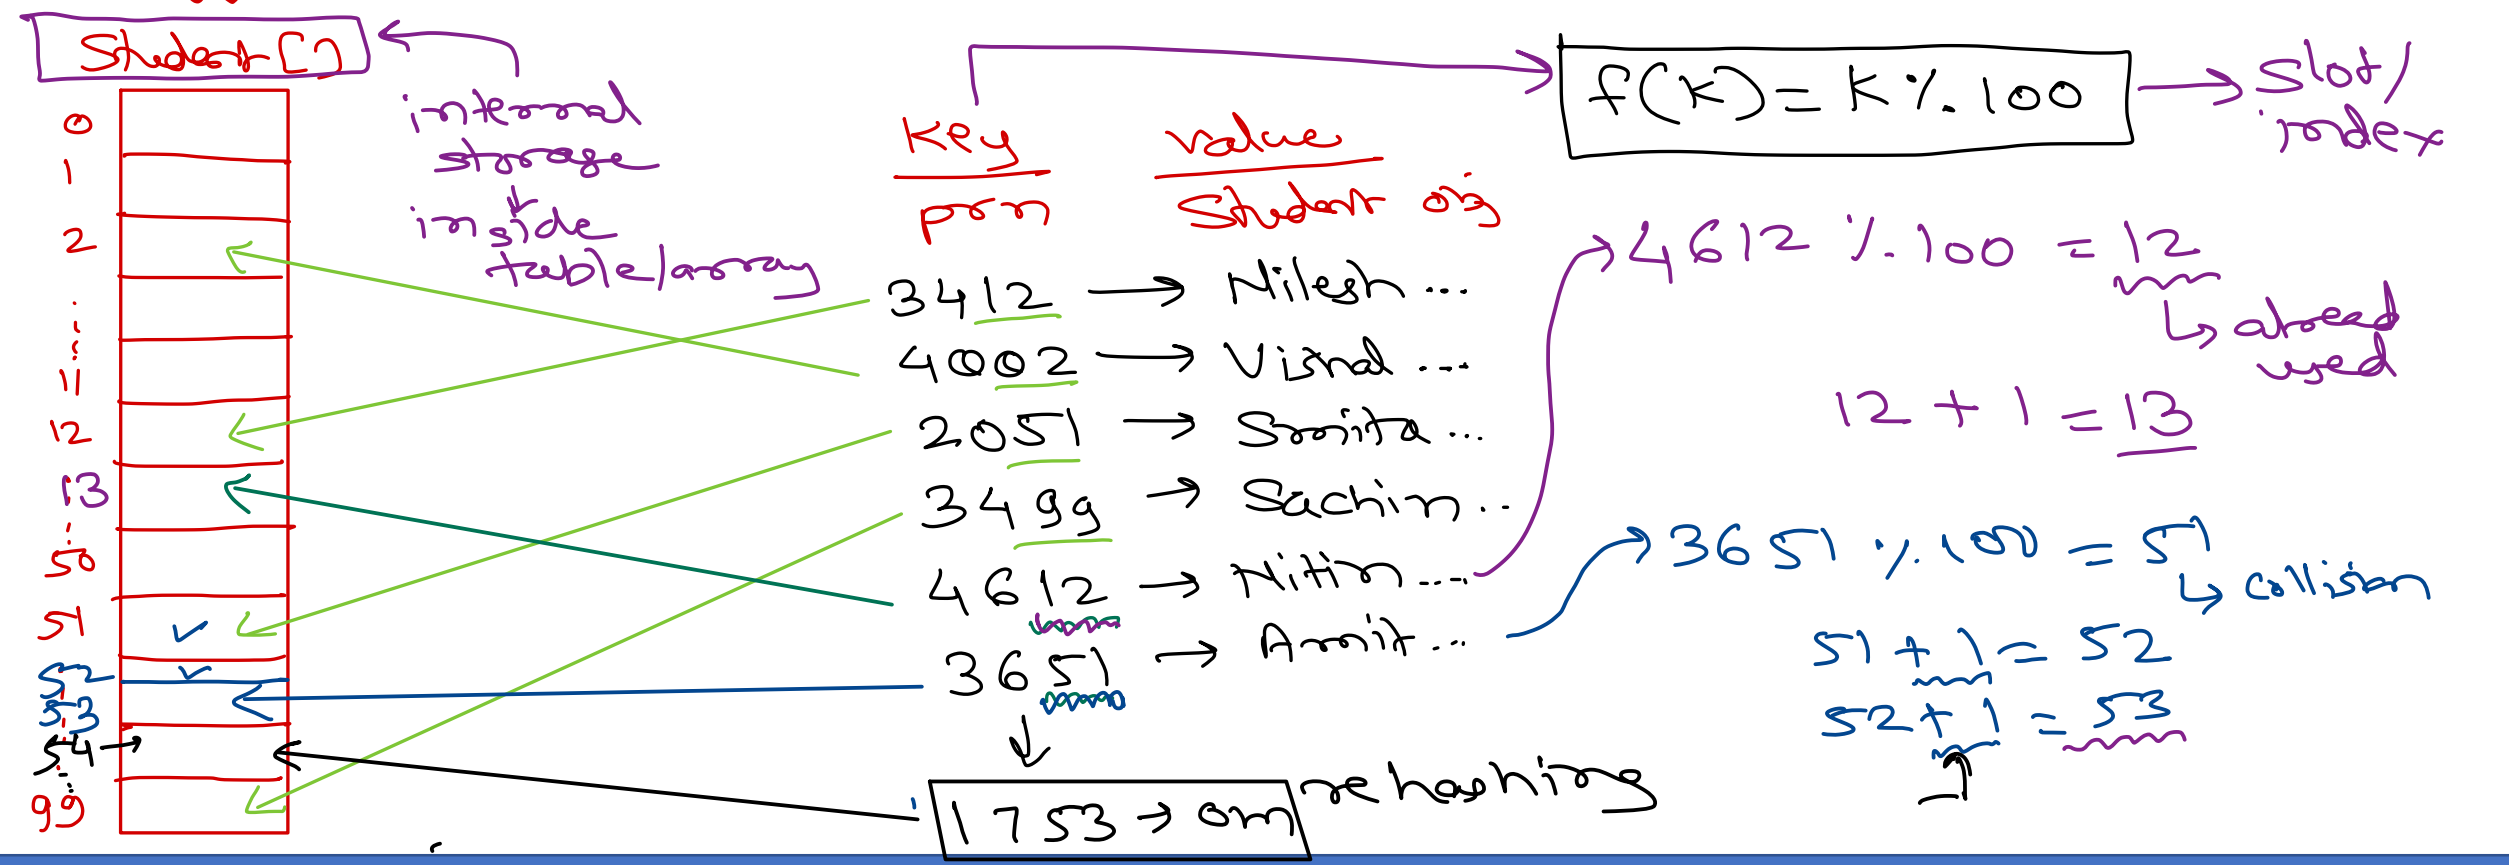 Student[]
0
1
2
11
12
13
50
51
52
53
54
99
internal
storage
inside
Hashed
Key
prn
value
Student obj
3412 → Nilesh ...
4002 → Vinod ...
2051 → Sonia ...
3499 → Sachin ..
4612 → Nitin ....
3651 → Amit ...
1753 → om
Rehashing
f(k) = k % 100
→ slot/
index
4612 % 100 = 12
↳ already
used
12 + 1 = 13
3651 % 100 = 51
↳ collision
51 + 1 = 52
52 + 1 = 53